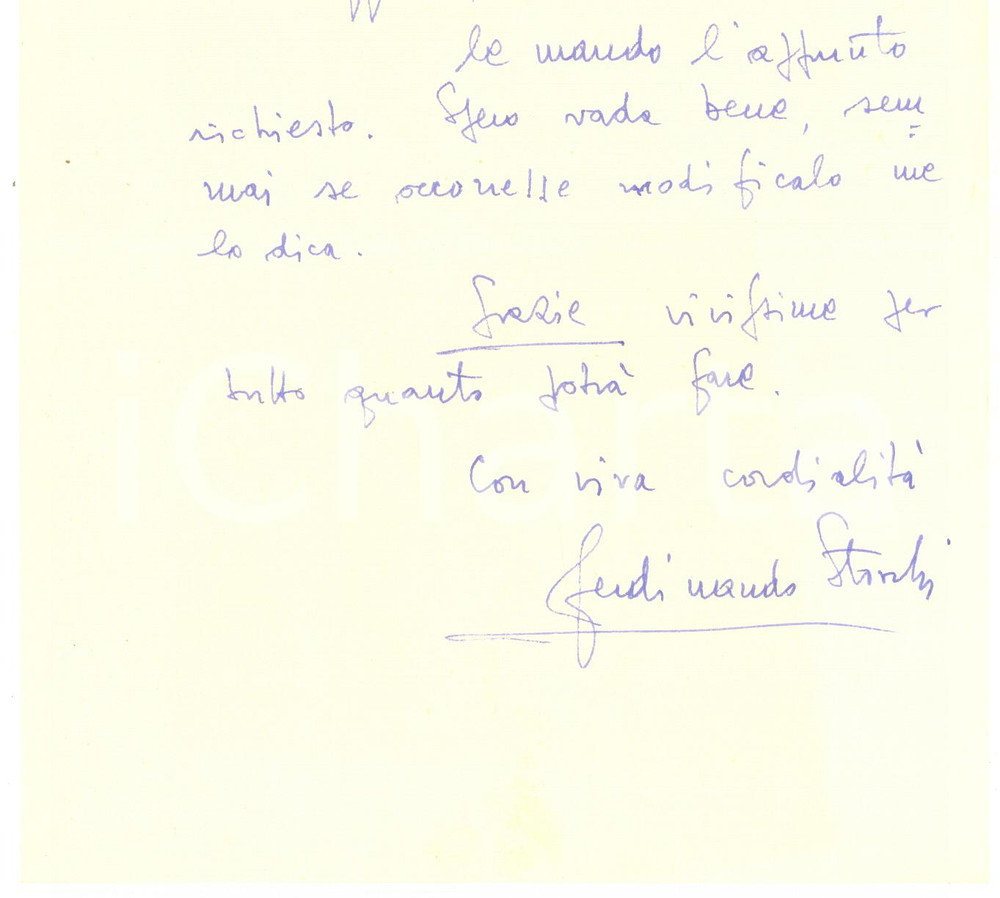 le mando l'appunto
richiesto. Spero vada bene, sem=
mai se occorresse modificalo me
lo dica.
Grazie vivissime per
tutto quanto potrà fare.
Con viva cordialità
Ferdinando
iCharta